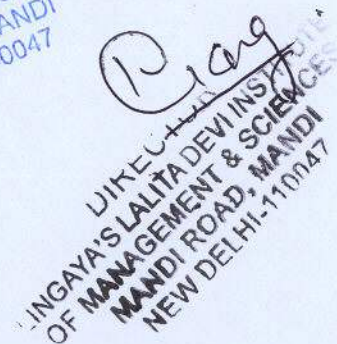 ANDI
0047
DIRECTOR
LINGAYA'S LALITA DEVI INSTITUTE
OF MANAGEMENT & SCIENCES
MANDI ROAD, MANDI
NEW DELHI-110047